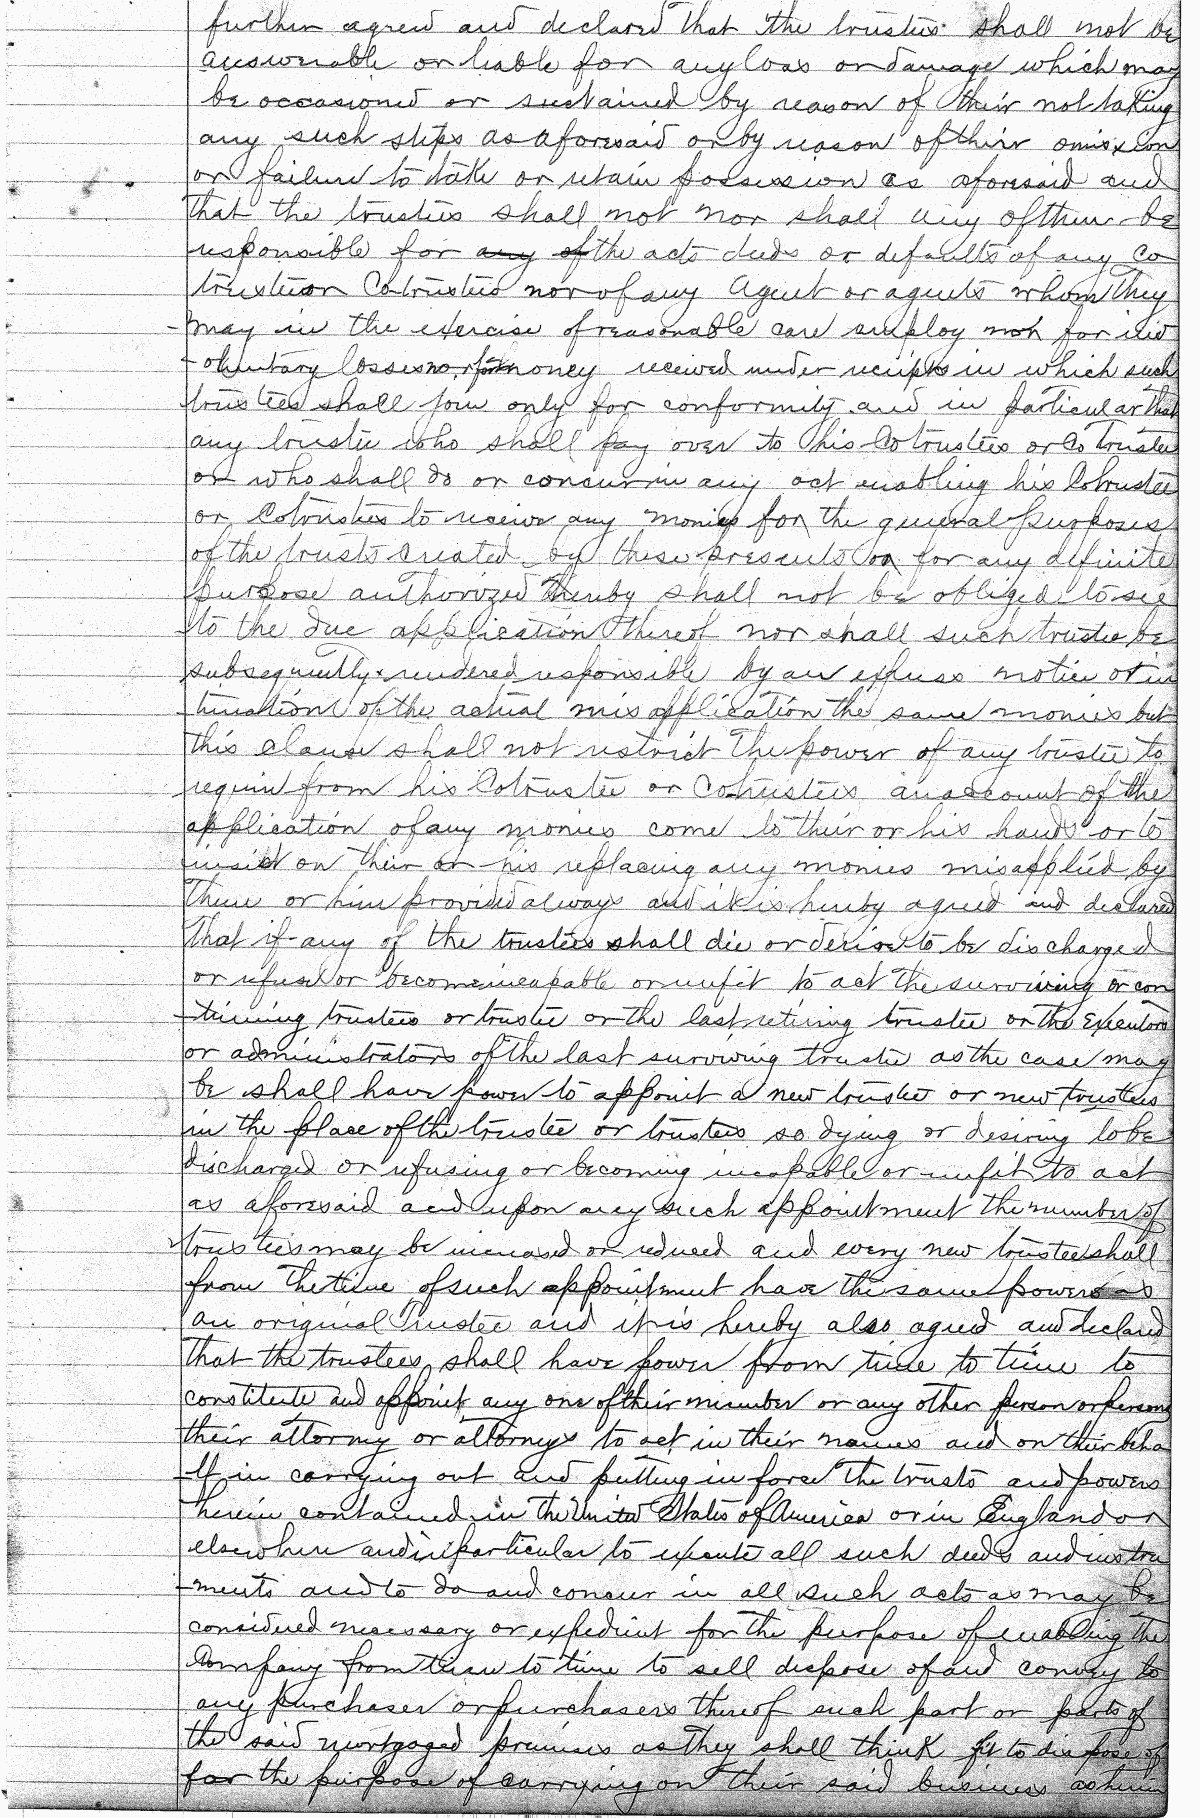 further agreed and declared that the trustees shall not be
answerable or liable for any loss or damage which may
be occasioned or sustained by reason of their not taking
any such steps as aforesaid or by reason of their omission
or failure to take or retain possession as aforesaid and
that the trustees shall not nor shall any of them be
responsible for any of the acts deeds or defaults of any co
trustee or Cotrustees nor of any Agent or agents whom they
may in the exercise of reasonable care employ nor for inv
oluntary losses nor for money received under receipts in which such
trustees shall join only for conformity and in particular that
any trustee who shall pay over to his Cotrustees or Co Trustee
or who shall do or concur in any act enabling his Cotrustee
or Cotrustees to receive any monies for the general purposes
of the trusts created by these presents or for any definite
purpose authorized thereby shall not be obliged to see
to the due application thereof nor shall such trustee be
subsequently rendered responsible by an express notice or in
timation of the actual misapplication the same monies but
this clause shall not restrict the power of any trustee to
require from his Cotrustee or Cotrustees an account of the
application of any monies come to their or his hands or to
insist on their or his replacing any monies misapplied by
them or him provided always and it is hereby agreed and declared
that if any of the trustees shall die or desire to be discharged
or refuse or become incapable or unfit to act the surviving or con
tinuing trustees or trustee or the last retiring trustee or the Executors
or administrators of the last surviving trustee as the case may
be shall have power to appoint a new trustee or new trustees
in the place of the trustee or trustees so dying or desiring to be
discharged or refusing or becoming incapable or unfit to act
as aforesaid and upon any such appointment the number of
trustees may be increased or reduced and every new trustee shall
from the time of such appointment have the same powers as
an original Trustee and it is hereby also agreed and declared
that the trustees shall have power from time to time to
constitute and appoint any one of their number or any other person or persons
their attorney or attorneys to act in their names and on their beha
lf in carrying out and putting in force the trusts and powers
herein contained in the United States of America or in England or
elsewhere and in particular to execute all such deeds and instru
ments and to do and concur in all such acts as may be
considered necessary or expedient for the purpose of enabling the
Company from time to time to sell dispose of and convey to
any purchaser or purchasers thereof such part or parts of
the said mortgaged premises as they shall think fit to dispose of
for the purpose of carrying on their said business as herein